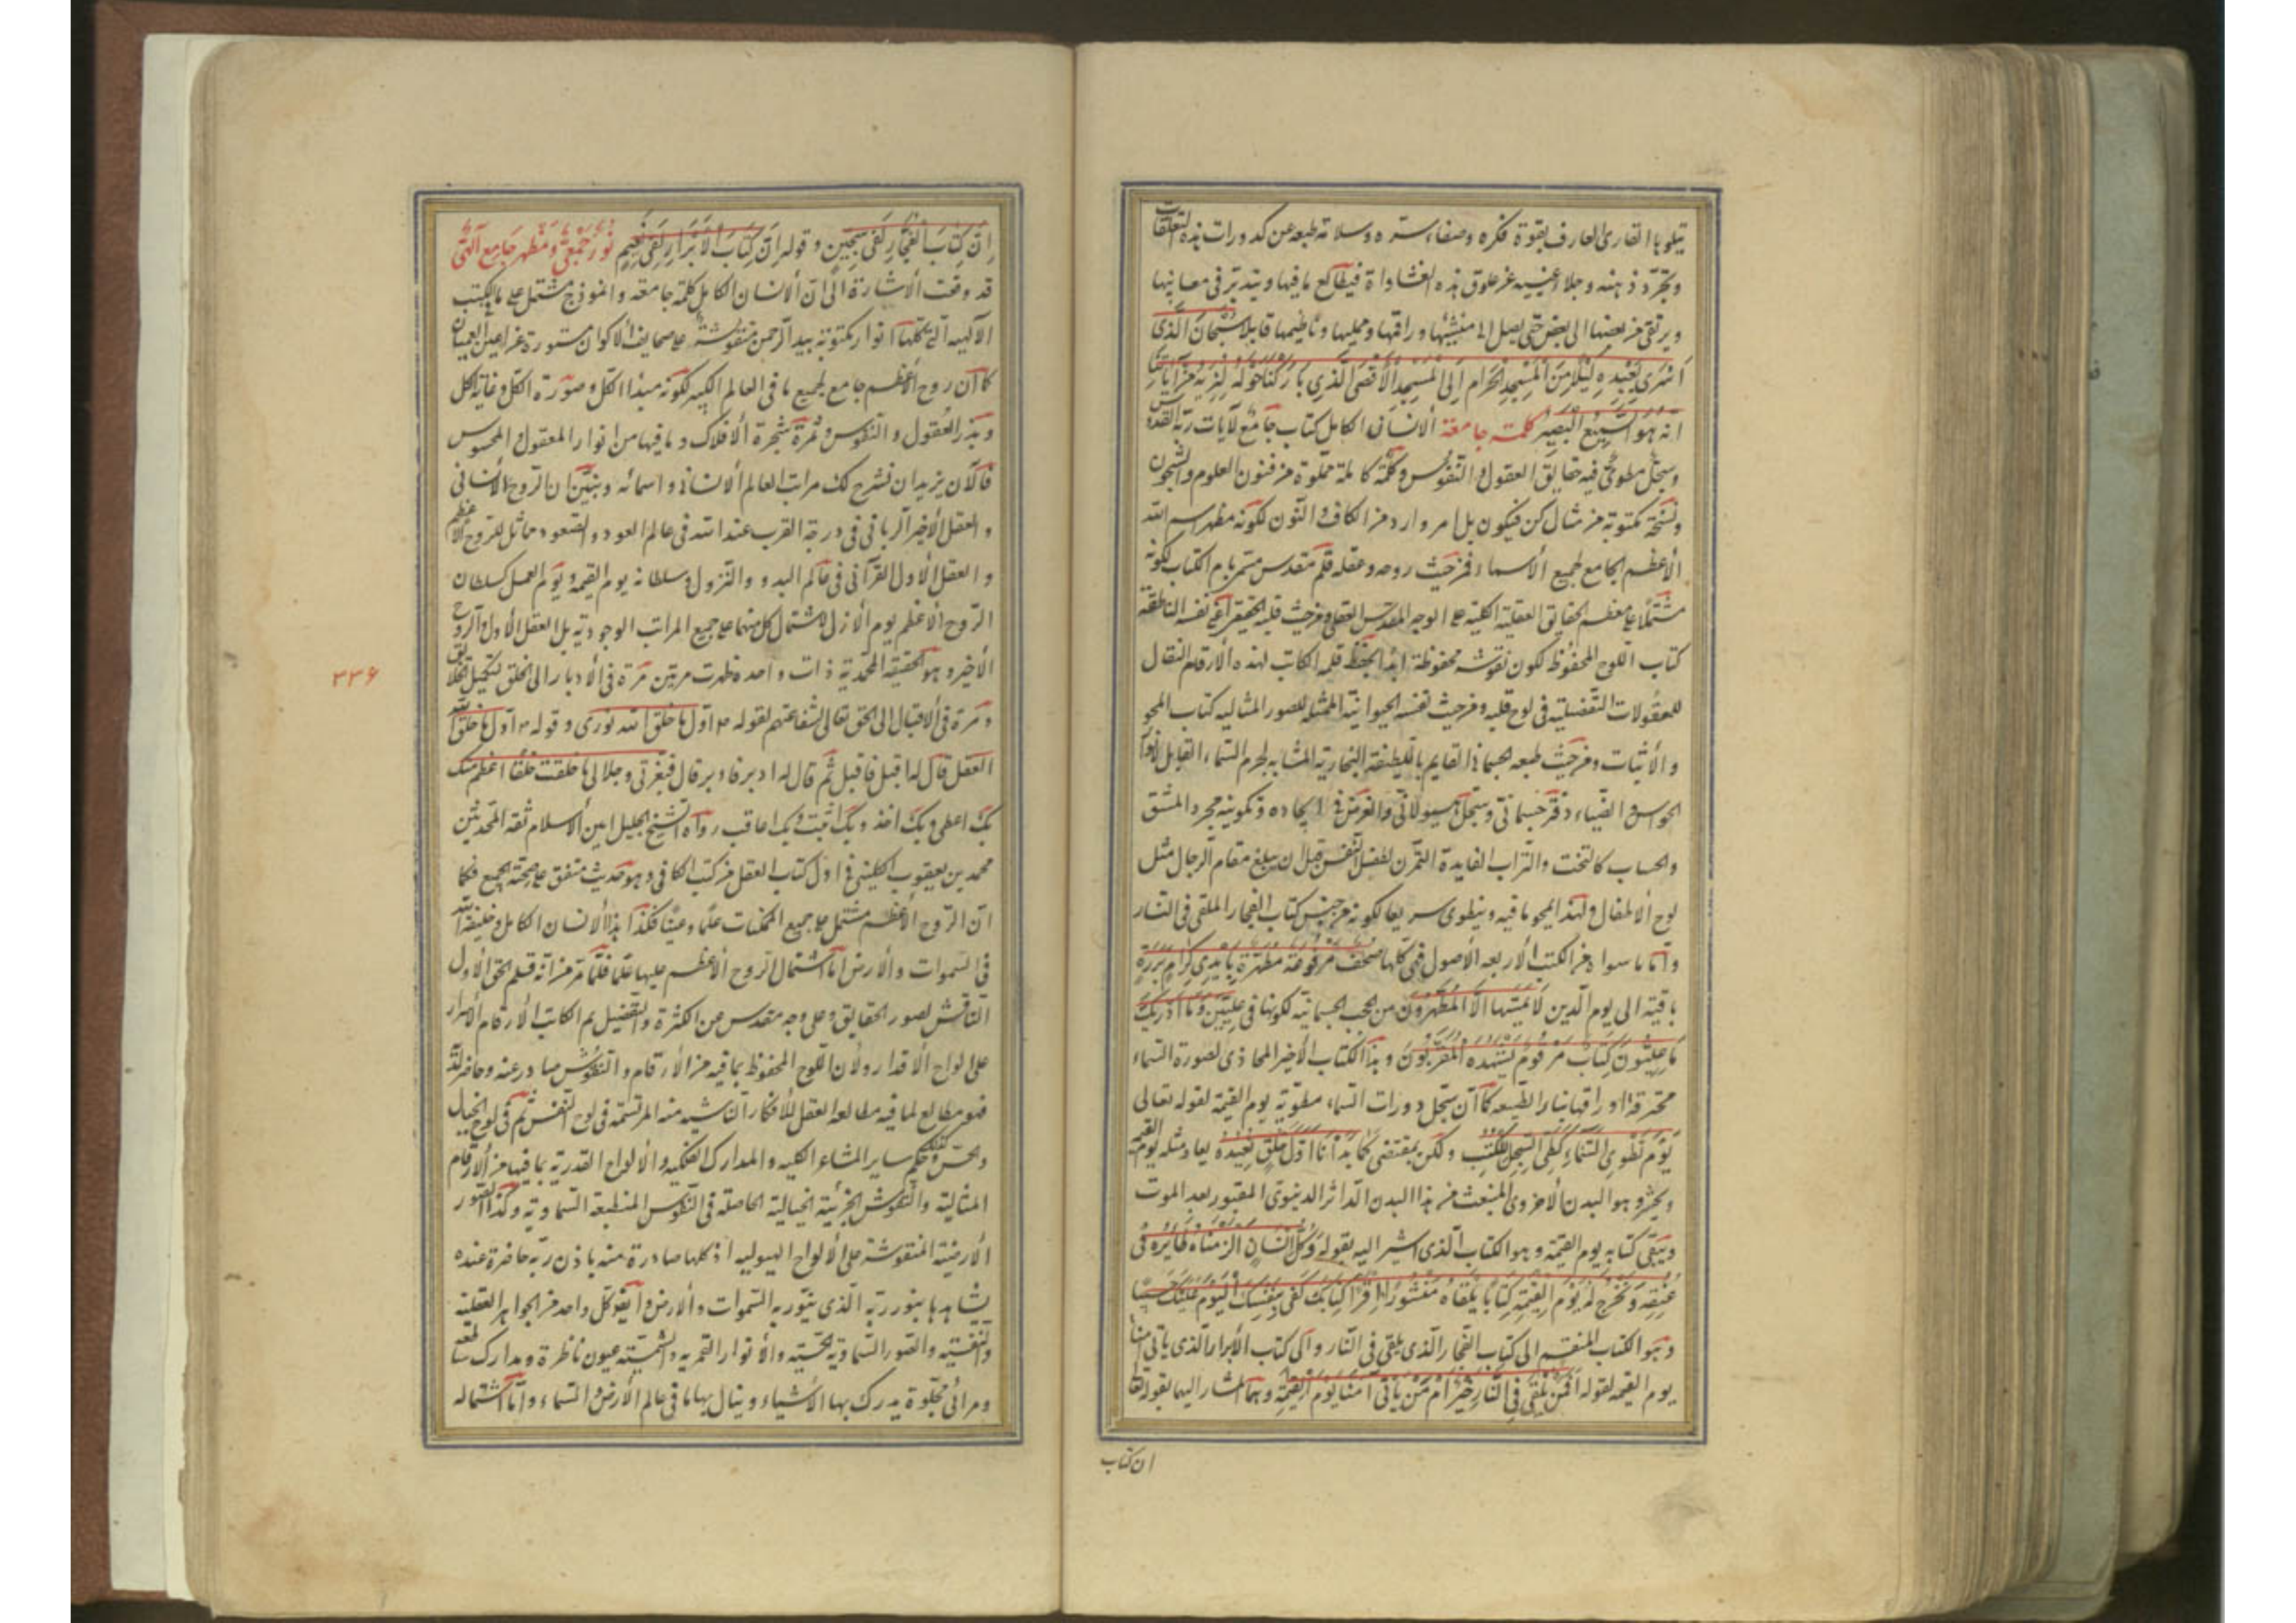 يتلوها القارئ العارف بقوة فكره وصفاء سره وسلامة طبعه من كدورات هذه التعلقات
وتجرد ذهنه وجلاء عينيه عن علوق هذه الغشاواة فيطالع ما فيها ويتدبر في معانيها
ويرتقي من بعضها الى بعض حتى يصل الى منشئها وراقمها وممليها وناظمها قايلا سُبْحَانَ الَّذِى
اَسْرَى بِعَبْدِهِ لَيْلًا مِنَ الْمَسْجِدِ الْحَرَامِ اِلَى الْمَسْجِدِ الْاَقْصَى الَّذِى بَارَكْنَا حَوْلَهُ لِنُرِيَهُ مِنْ آيَاتِنَا
اِنَّهُ هُوَ السَّمِيعُ الْبَصِيرُ كلمة جامعة الانسان الكامل كتاب جامع لآيات ربه القدوس
وسجل مطوى فيه حقايق العقول والنفوس وكلمة كاملة مملوة من فنون العلوم والشجون
ونسخة مكتوبة من مثال كن فيكون بل امر وارد من الكاف والنون لكونه مظهر اسم الله
الأعظم الجامع لجميع الأسماء فمن حيث روحه وعقله قلم مقدس متمربام الكتاب لكونه
مشتملا على معظم الحقايق العقلية الكلية على الوجه المقدس العقلى ومن حيث قلبه الحقيقى اعنى نفسه الناطقة
كتاب اللوح المحفوظ لكون نقوشه محفوظة ابدا لحفظ قلبه الكاتب لهذه الأرقام النقال
للمعقولات التفصيلية فى لوح قلبه ومن حيث نفسه الحيوانية الممثلة للصور المثاليه كتاب المحو
والأثبات ومن حيث طبعه الجسمانى القايم باللطيفة البخارية المشابه لجرم السماء القابل لأنوار
الحواس والضياء دفتر جسمانى وسجل هيولانى والغرض فى ايجاده وتكوينه مجرد المشق
والحساب كالتخت والتراب لفايدة التمرن لفضل النفس قبل ان يبلغ مقام الرجال مثل
لوح الأطفال ولهذا يمحو ما فيه وينطوى سريعا لكونه من جنس كتاب الفجار الملقى فى النار
واما ما سواه من الكتب الأربعه الأصول فهى كلها صُحُف مَرْفُوعَة مُطَهَّرَة بِاَيْدِى كِرَامٍ بَرَرَةٍ
باقية الى يوم الدين لَا يَمَسُّهَا اِلَّا الْمُطَهَّرُونَ من الحجب الجسمانيه لكونها فى عِلِّيِّينَ وَمَا اَدْرٰيكَ
مَا عِلِّيُّونَ كِتَابٌ مَرْقُومٌ يَشْهَدُهُ الْمُقَرَّبُونَ وهذا الكتاب الأخير المحاذى لصورة السماء
محترقة اوراقها بنار الطبيعه كما ان سجل دورات السماء مطوية يوم القيمة لقوله تعالى
يَوْمَ نَطْوِى السَّمَاءَ كَطَىِّ السِّجِلِّ لِلْكُتُبِ ولكن بمقتضى كَمَا بَدَأْنَا اَوَّلَ خَلْقٍ نُعِيدُهُ يعاد مثله يوم القيمة
ويحشر وهو البدن الأخروى المنبعث من هذا البدن الداثر الدنيوى المقبور بعد الموت
ويبقى كتابه يوم القيمة وهو الكتاب الذى اشير اليه بقوله وَكُلَّ اِنْسَانٍ اَلْزَمْنَاهُ طَائِرَهُ فِى
عُنُقِهِ وَنُخْرِجُ لَهُ يَوْمَ الْقِيٰمَةِ كِتَابًا يَلْقَاهُ مَنْشُورًا اِقْرَأْ كِتَابَكَ كَفَى بِنَفْسِكَ الْيَوْمَ عَلَيْكَ حَسِيبًا
وهو الكتاب المنقسم الى كتاب الفجار الذى يلقى فى النار والى كتاب الأبرار الذى ياتى آمنا
يوم القيمه لقوله اَفَمَنْ يُلْقَى فِى النَّارِ خَيْرٌ اَمْ مَنْ يَاْتِى آمِنًا يَوْمَ الْقِيمَةِ وهما المشار اليهما بقوله تعالى
ان كتاب
اِنَّ كِتَابَ الْفُجَّارِ لَفِى سِجِّينٍ وقوله اِنَّ كِتَابَ الْاَبْرَارِ لَفِى نَعِيمٍ نور جمعى ومظهر جامع الهى
قد وقعت الأشارة الى ان الأنسان الكامل كلمة جامعه وانموذج مشتمل على ما فى الكتب
الآلهيه التى كلها انوار مكتوبة بيد الرحمن منقوشة على صحايف الأكوان مستورة عن اعين العميان
كما ان روح الأعظم جامع لجميع ما فى العالم الكبير لكونه مبدا الكل وصورة الكل وغاية الكل
وبذر العقول والنفوس وثمرة شجرة الأفلاك وما فيها من انوار المعقول والمحسوس
فالآن نريد ان نشرح لك مراتب العالم الأنسانى واسمائه ونبين ان الروح الأنسانى
والعقل الأخير الربانى فى درجة القرب عند الله فى عالم العود والصعود مماثل للروح الأعظم
والعقل الأول القرآنى فى عالم البدو والنزول وسلطانه يوم القيمه ويوم العمل كسلطان
الروح الأعظم يوم الأزل لاشتمال كل منهما على جميع المراتب الوجودية بل العقل الأول والروح
الأخير وهو الحقيقة المحمدية ذات واحده ظهرت مرتين مرة فى الأدبار الى الخلق لتكميل الخلايق
ومرة فى الأقبال الى الحق تعالى لشفاعتهم لقوله ص اول ما خلق الله نورى وقوله ص اول ما خلق الله
العقل قال له اقبل فاقبل ثم قال له ادبر فادبر قال فبعزتى وجلالى ما خلقت خلقا اعظم منك
بك اعطى وبك اخذ وبك اثيب وبك اعاقب رواه الشيخ الجليل امين الأسلام ثقه المحدثين
محمد بن يعقوب الكلينى فى اول كتاب العقل من كتب الكافى وهو حديث متفق على صحته الجميع فكما
ان الروح الأعظم مشتمل على جميع الممكنات علما وعينا فكذا هذا الأنسان الكامل وخليفة الله
فى السموات والأرض اما اشتمال الروح الأعظم عليها علما فلما مر من انه قلم الحق الأول
الناقش لصور الحقايق وعلى وجه مقدس عن الكثرة والتفصيل ثم الكاتب الأرقام الأسرار
على الواح الأقدار ولأن اللوح المحفوظ بما فيه من الأرقام والنقوش صادر عنه وحاضر لديه
فهو مطالع لما فيه مطالعه العقل للأفكار الناشيه منه المرتسمة فى لوح النفس ثم فى لوح الخيال
والحس وكذلك حكم ساير المشاعر الكليه والمدارك الفلكيه والألواح القدرية بما فيها من الأرقام
المثالية والنقوش الجزئية الخيالية الحاصلة فى النفوس المنطبعة السماوية وكذا الصور
الأرضية المنقوشة على الألواح الهيوليه اذ كلها صادرة منه باذن ربه حاضرة عنده
يشاهدها بنور ربه الذى ينور به السموات والأرض وايضا كل واحد من الجواهر العقلية
والنفسيه والصور السماوية الحسيه والأنوار القمريه والشمسيه عيون ناظرة ومدارك سامعه
ومرائى مجلوة يدرك بها الأشياء وينال بها ما فى عالم الأرض والسماء واما اشتماله
٣٣۶